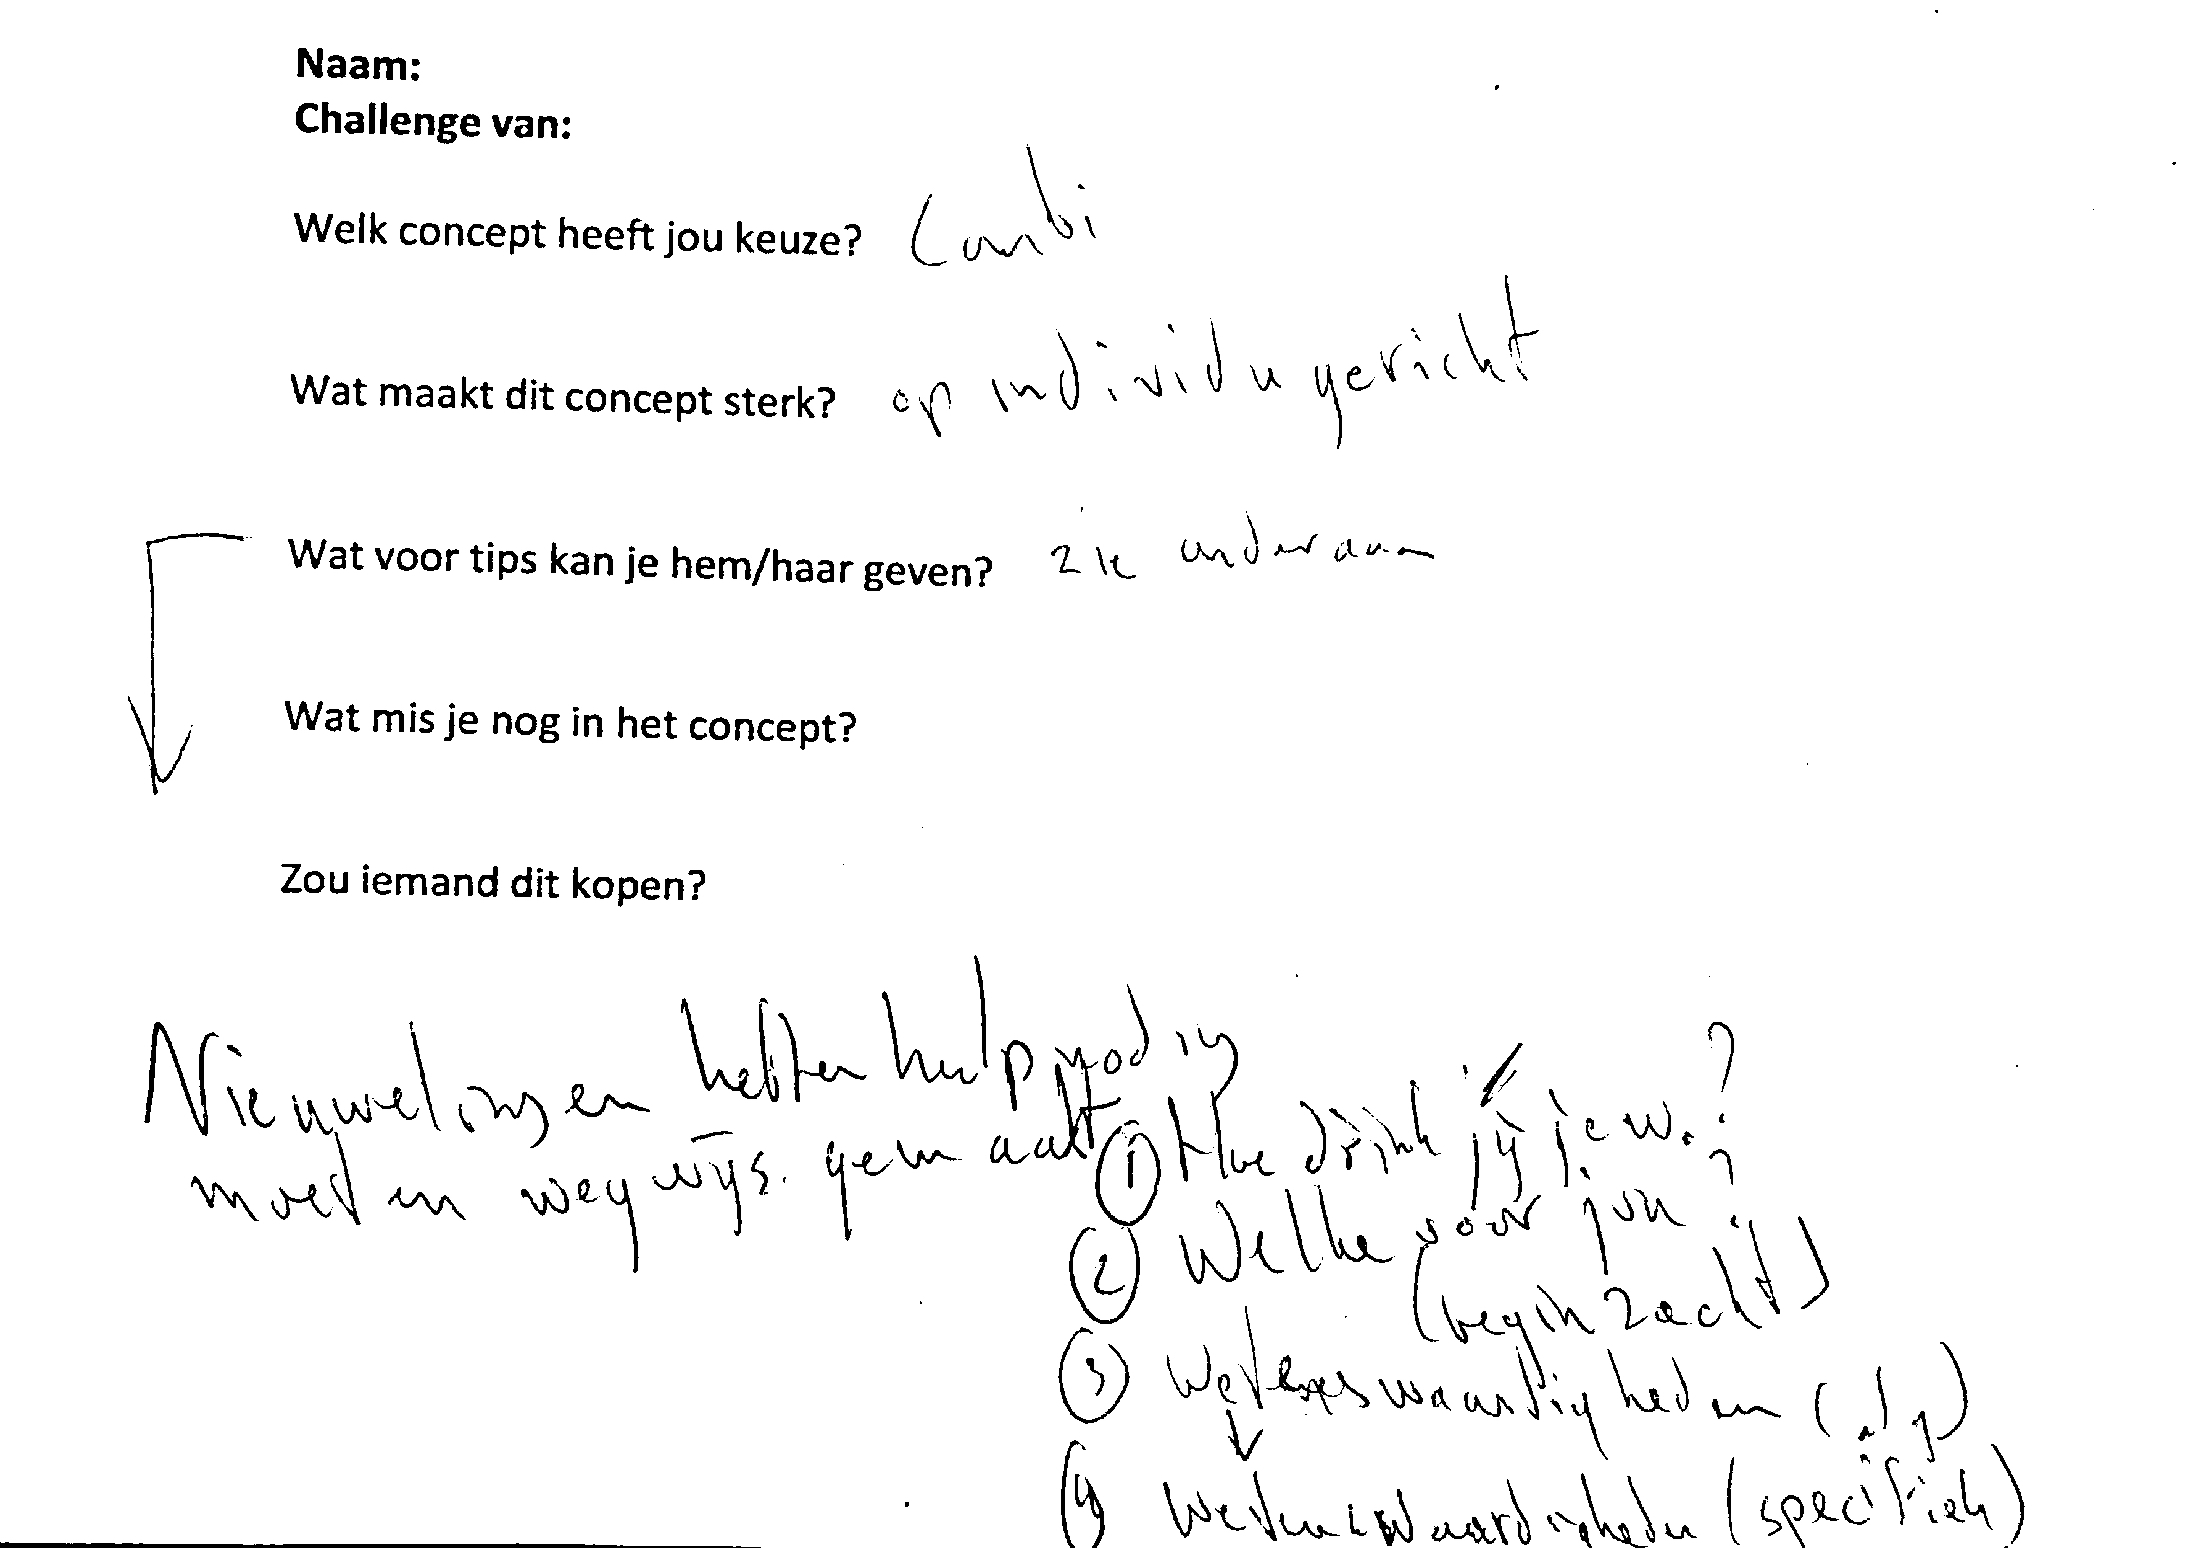 Naam:
Challenge van:
Welk concept heeft jou keuze? Combi
Wat maakt dit concept sterk? op individu gericht
Wat voor tips kan je hem/haar geven? zie onderaan
Wat mis je nog in het concept?
Zou iemand dit kopen?
Nieuwelingen hebben hulp nodig
moeten wegwijs gemaakt
① Hoe drink jij je w.?
② Welke voor jou?
(begin zacht)
③ Wetenswaardigheden
④ Wetenswaardigheden (specifiek)